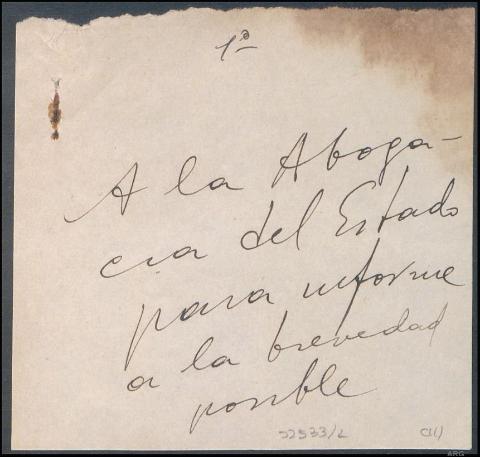 1º
A la Aboga-
cia del Estado
para informe
a la brevedad
posible
52533/2 C11)
ARG